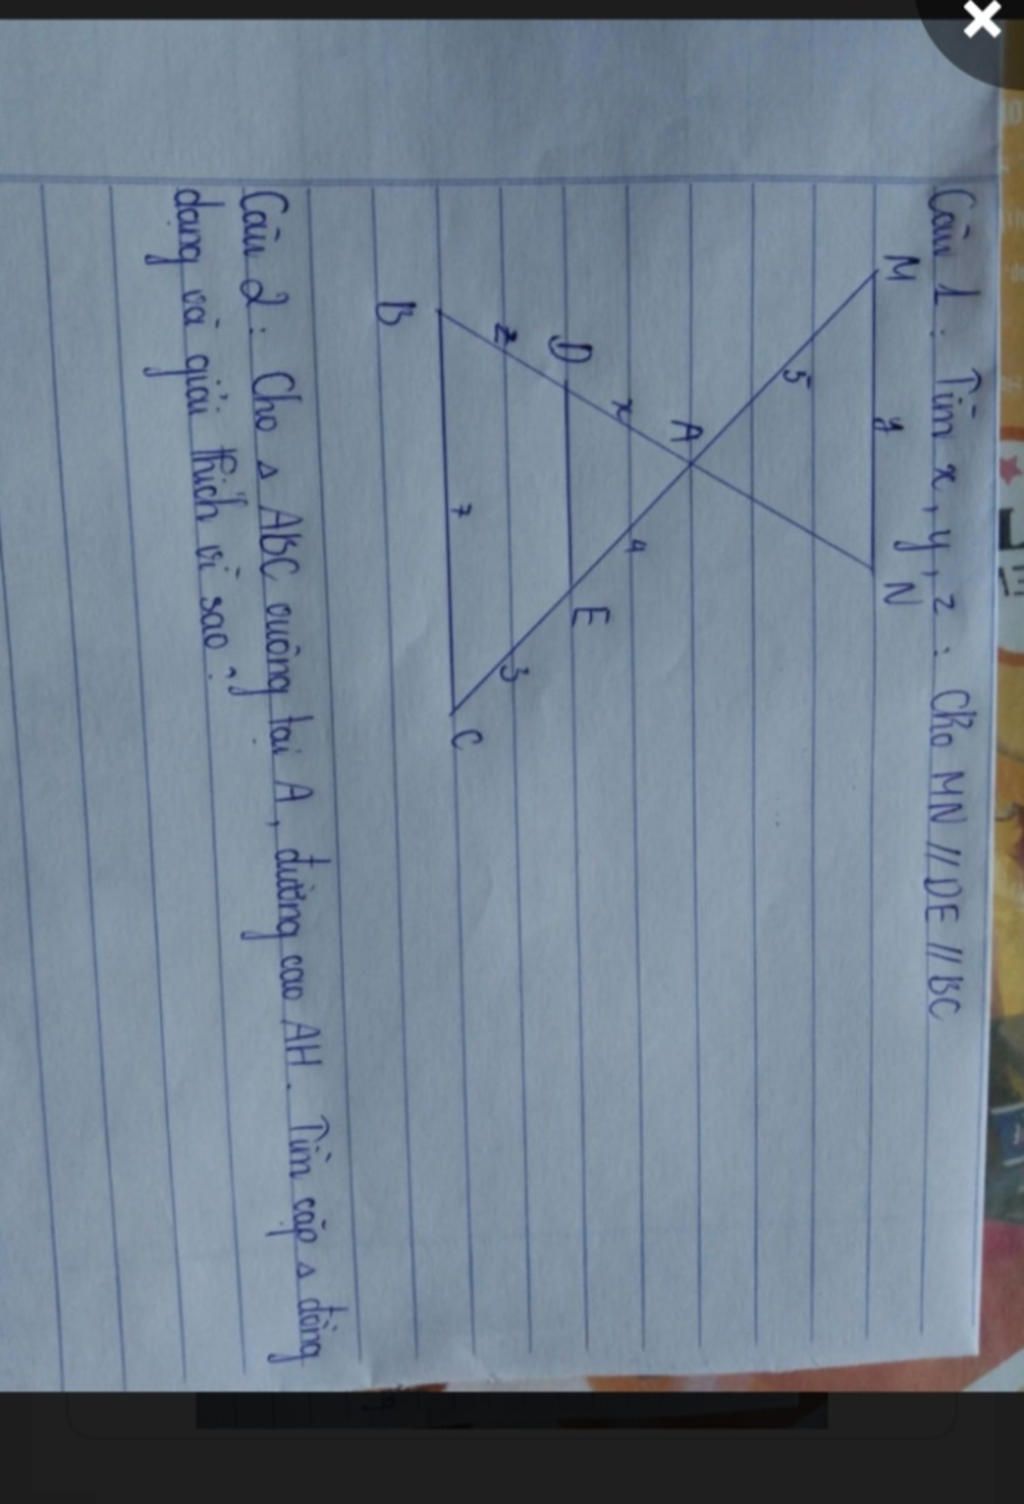 Câu 1 : Tìm x, y, z : Cho MN // DE // BC
M
y
N
5
A
x
4
D
E
z
3
B
7
C
Câu 2 : Cho ▵ ABC vuông tại A, đường cao AH. Tìm cặp ▵ đồng
dạng và giải thích vì sao ?